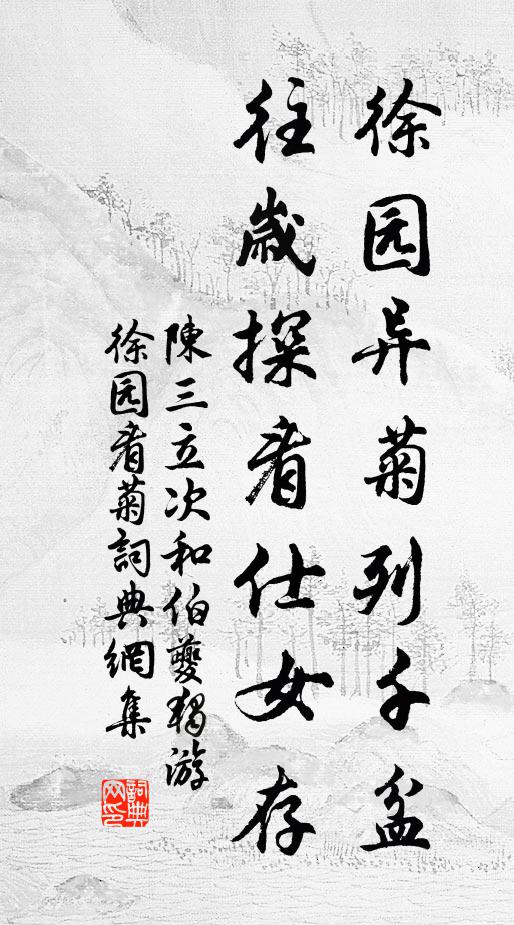 徐园异菊列千盆
往歲探看仕女存
陳三立次和伯夔獨游
徐园看菊詞典網集
詞典网印